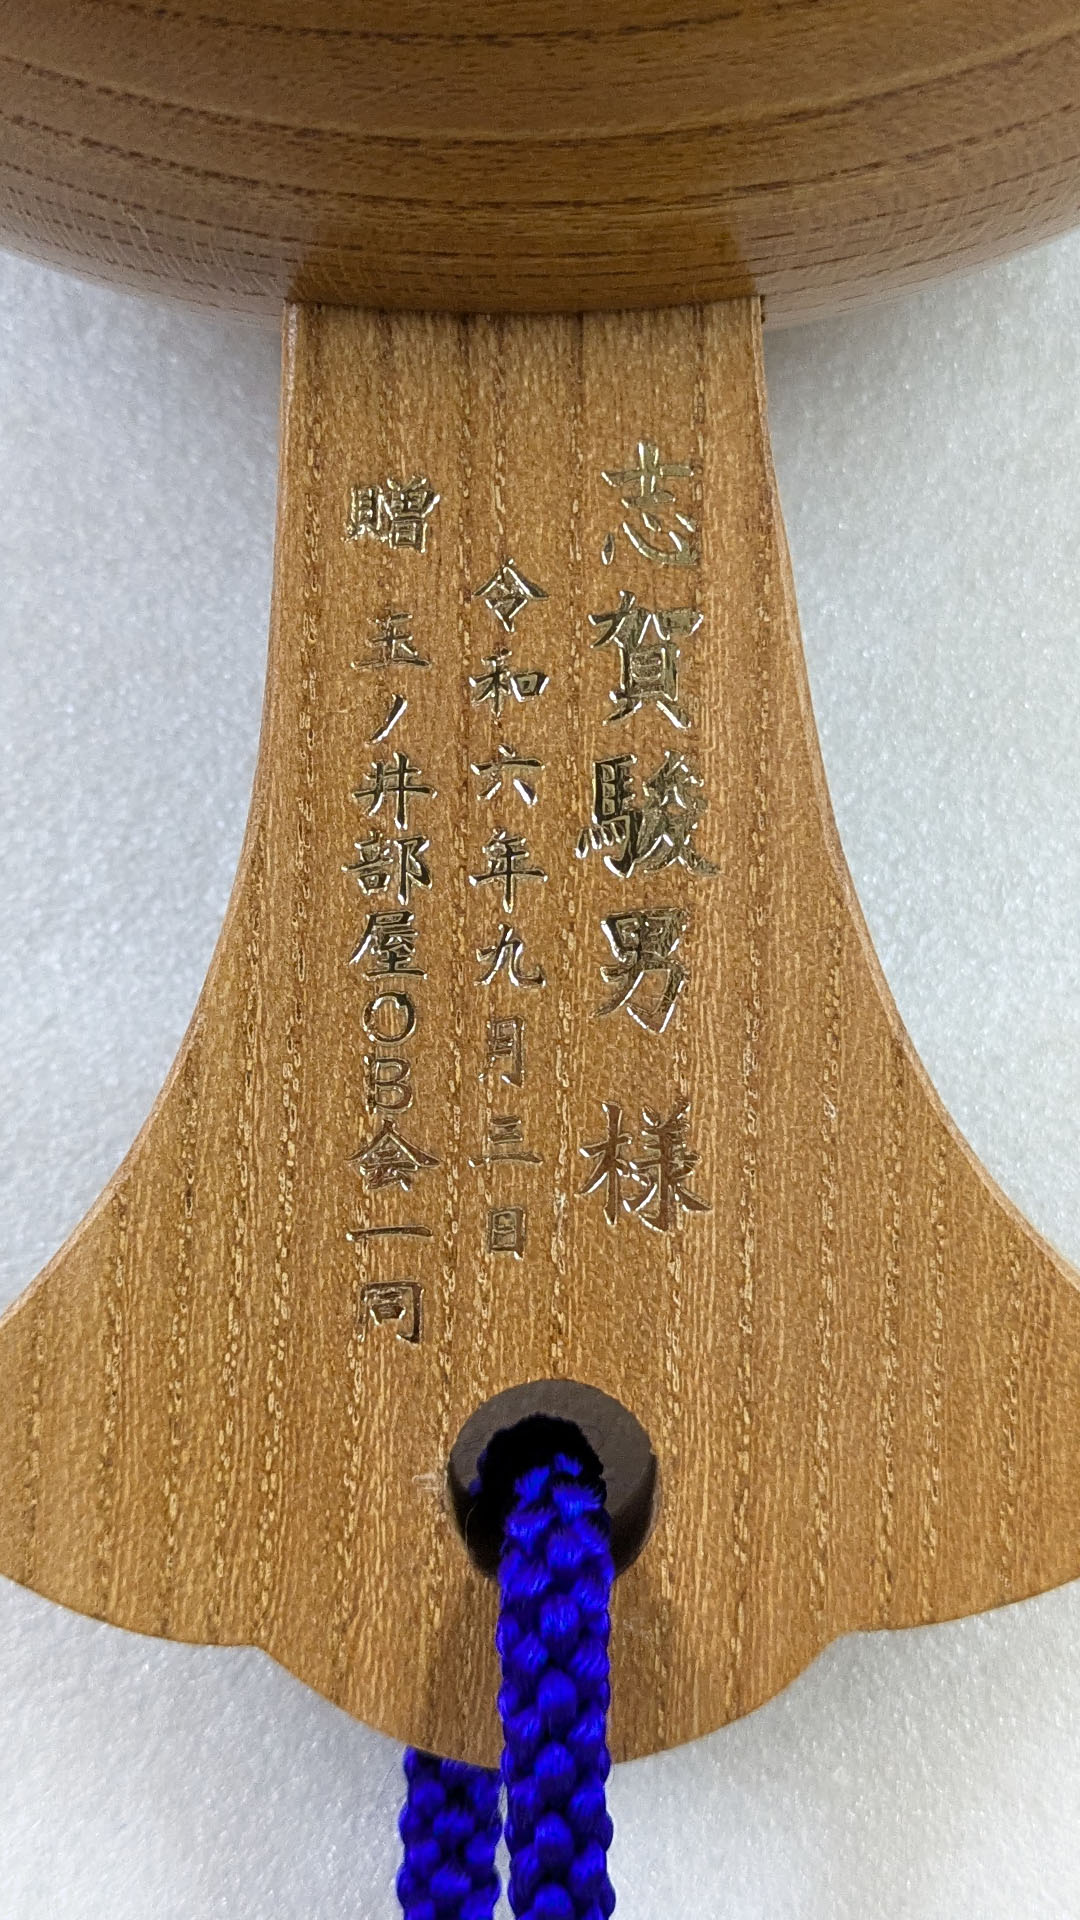 志賀駿男 様
令和六年九月三日
贈 玉ノ井部屋OB会一同